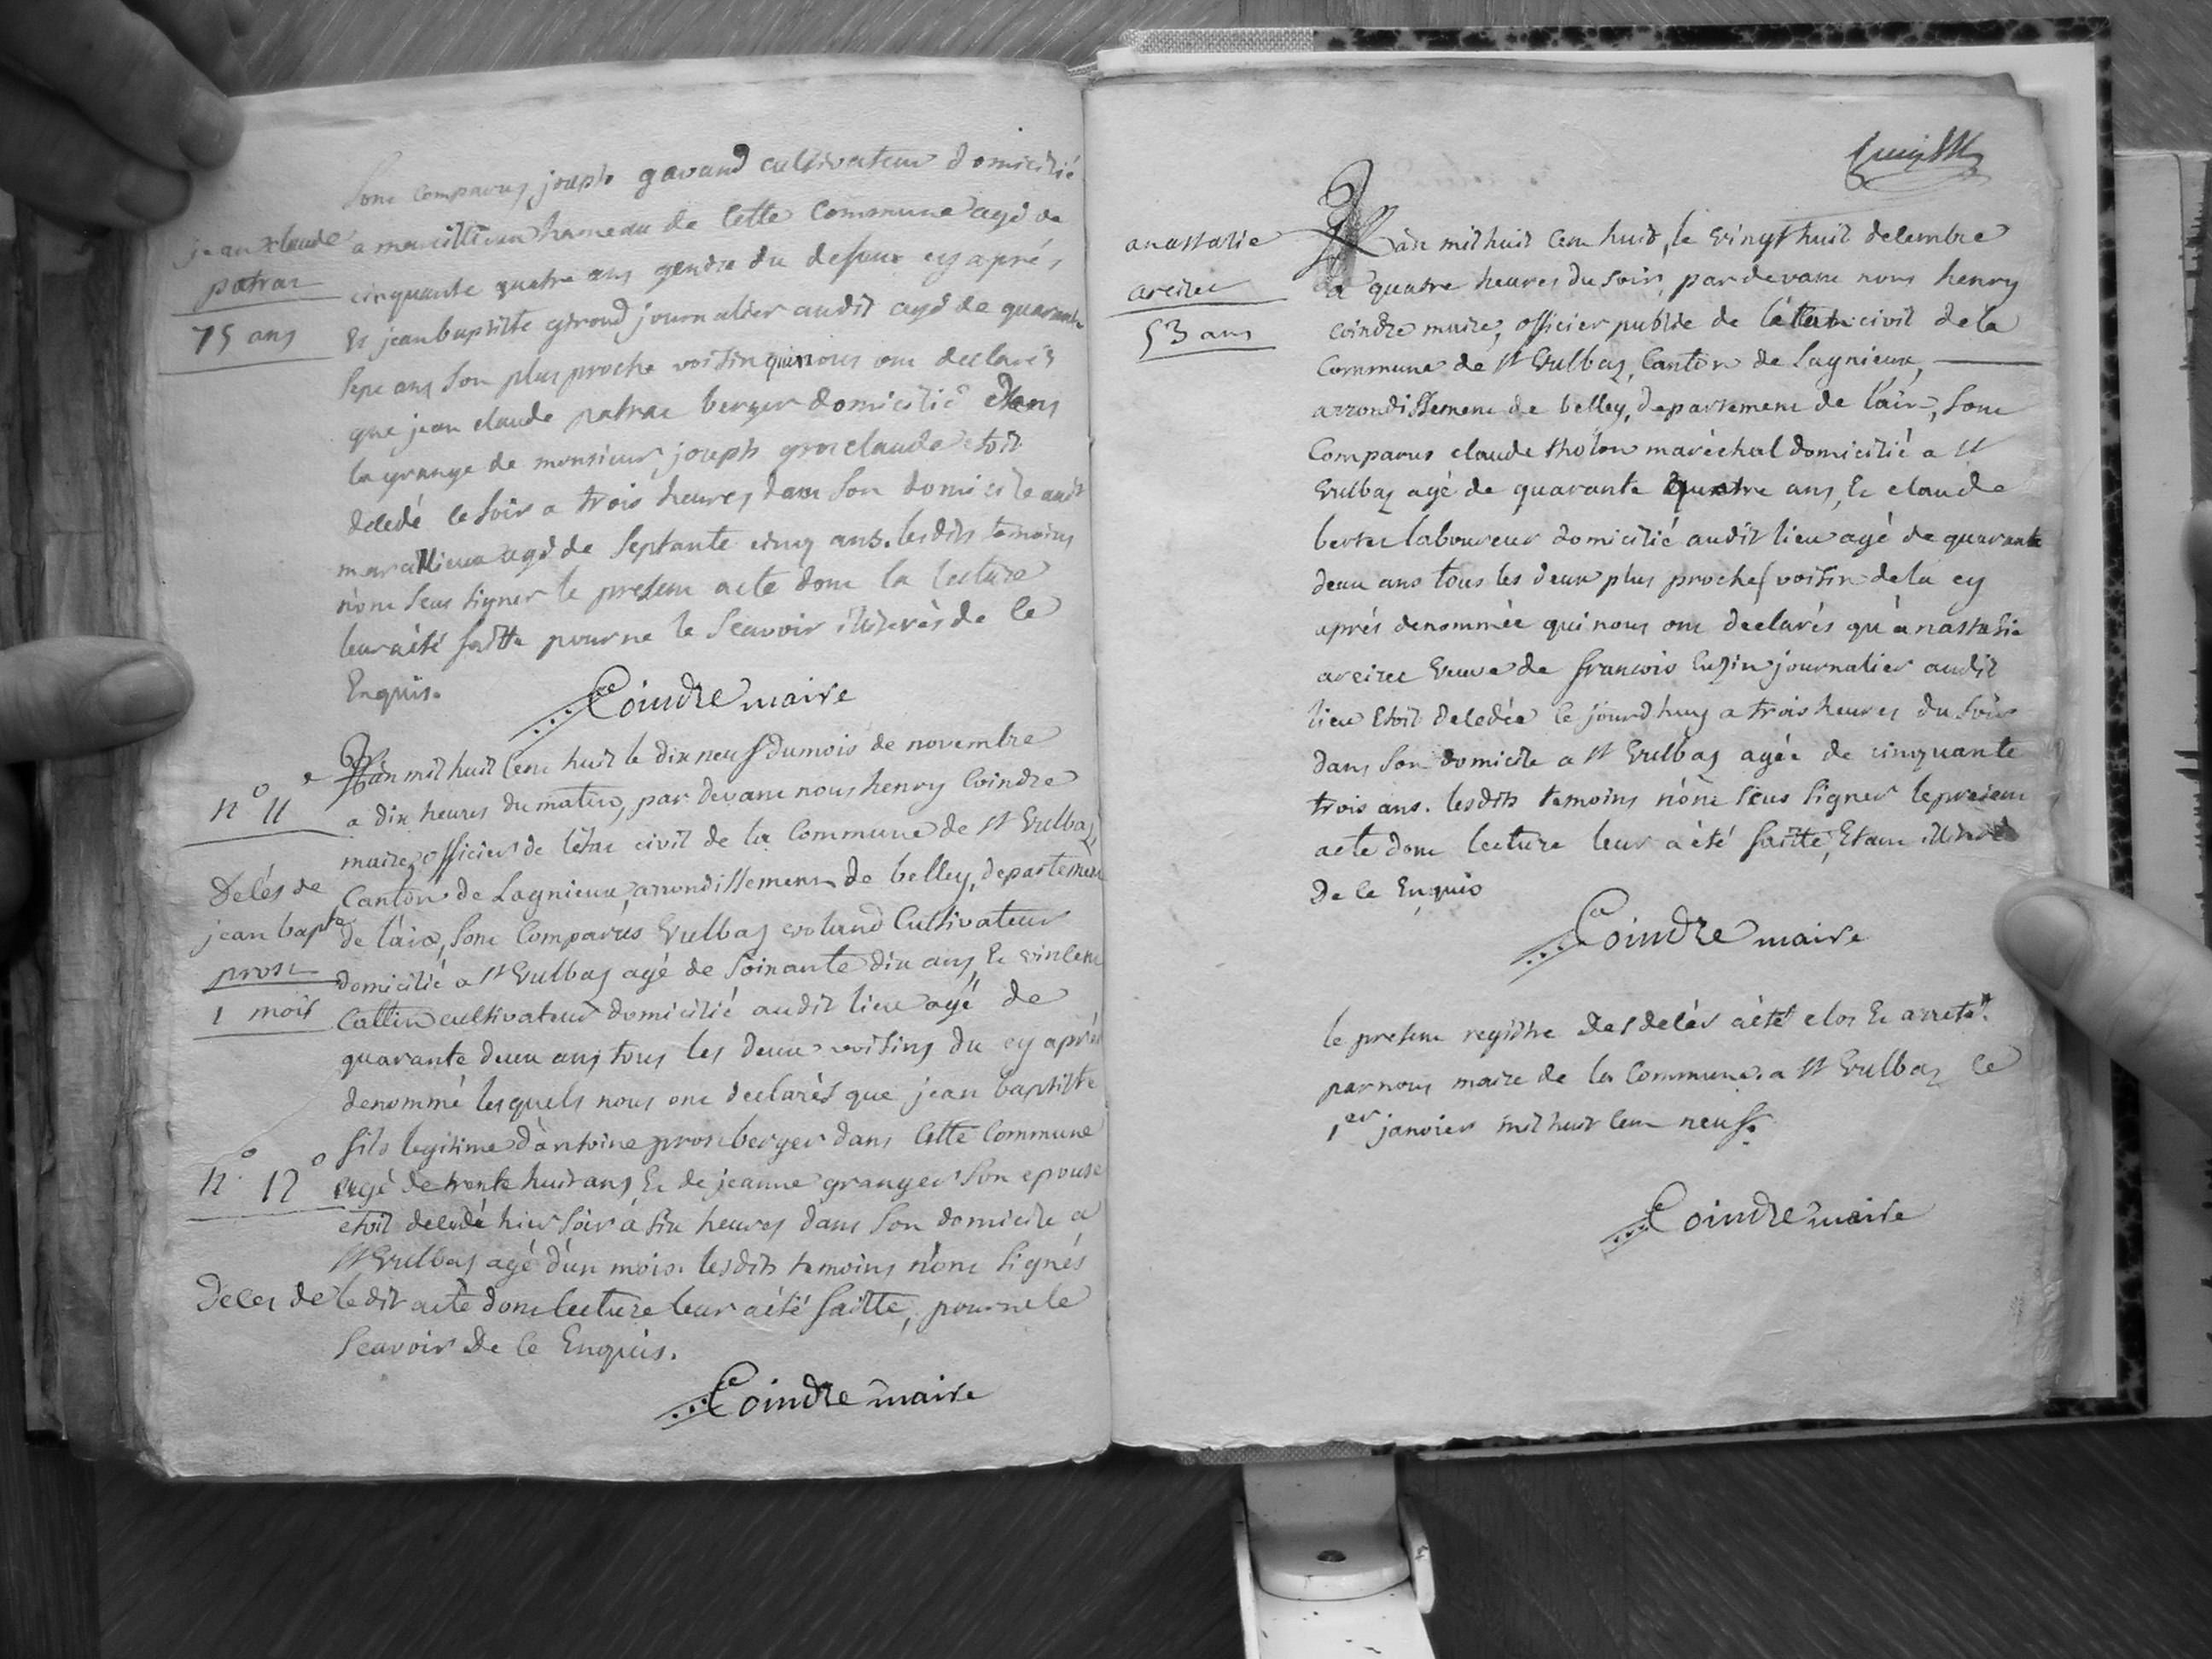 Sont comparus joseph gavand cultivateur domicilié
jean claude
a marcillieux hameau de Cette Commune agé de
patrac
cinquante quatre ans gendre du defunt cy après
75 ans
Et jean baptiste girond journalier audit agé de quarante
Sept ans Son plus proche voisin qui nous ont declarés
que jean claude patrac berger domicilié dans
la grange de monsieur joseph grosclaude etoit
decedé ce soir a trois heures dans Son domicile audit
marcillieux agé de Septante cinq ans. lesdits temoins
n'ont Seus signer le present acte dont la lecture
leur a été faitte pour ne le Scavoir illiterés de Ce
Enquis.
Coindre maire
n° 11e
L'an mil huit Cent huit le dix neuf du mois de novembre
a dix heures du matin, par devant nous henry Coindre
maire, officier de l'état civil de la Commune de St Vulbaz,
Decés de
Canton de Lagnieux, arrondissement de belley, departement
jean bapte
de l'ain, Sont Comparus Vulbas voland Cultivateur
prost
domicilié a St Vulbas agé de Soixante dix ans, Et vincent
1 mois
Cattin cultivateur domicilié audit lieu agé de
quarante deux ans tous les deux voisins du cy après
denommé lesquels nous ont declarés que jean baptiste
fils legitime d'antoine prost berger dans Cette Commune
n° 12e
agé de trente huit ans, Et de jeanne granger Son epouse
etoit decedé hier Soir à six heures dans Son domicile a
St Vulbas agé d'un mois. lesdits temoins n'ont Signés
Deces de
ledit acte dont lecture leur a été faitte, pour ne le
Scavoir De Ce Enquis.
Coindre maire
anastasie
L'an mil huit Cent huit, le vingt huit decembre
arcirec
a quatre heures du soir, par devant nous henry
53 ans
coindre maire, officier public de l'état civil de la
Commune de St Vulbaz, Canton de Lagnieux,
arrondissement de belley, departement de l'ain, Sont
Comparus claude tholon maréchal domicilié a St
Vulbaz agé de quarante quatre ans, Et claude
bertet laboureur domicilié audit lieu agé de quarante
deux ans tous les deux plus proches voisin de la cy
après denommée qui nous ont declarés qu'anastasie
arcirec veuve de francois Cuzin journalier audit
lieu Etoit decedée ce jourd'huy a trois heures du Soir
dans Son domicile a St Vulbaz agée de cinquante
trois ans. lesdits temoins n'ont Seus Signer le present
acte dont lecture leur a été faitte, Etant illiterés
De Ce Enquis
Coindre maire
le present registre des decés a été clos Et arreté
par nous maire de la Commune a St Vulbaz le
1er janvier mil huit Cent neuf.
Coindre maire